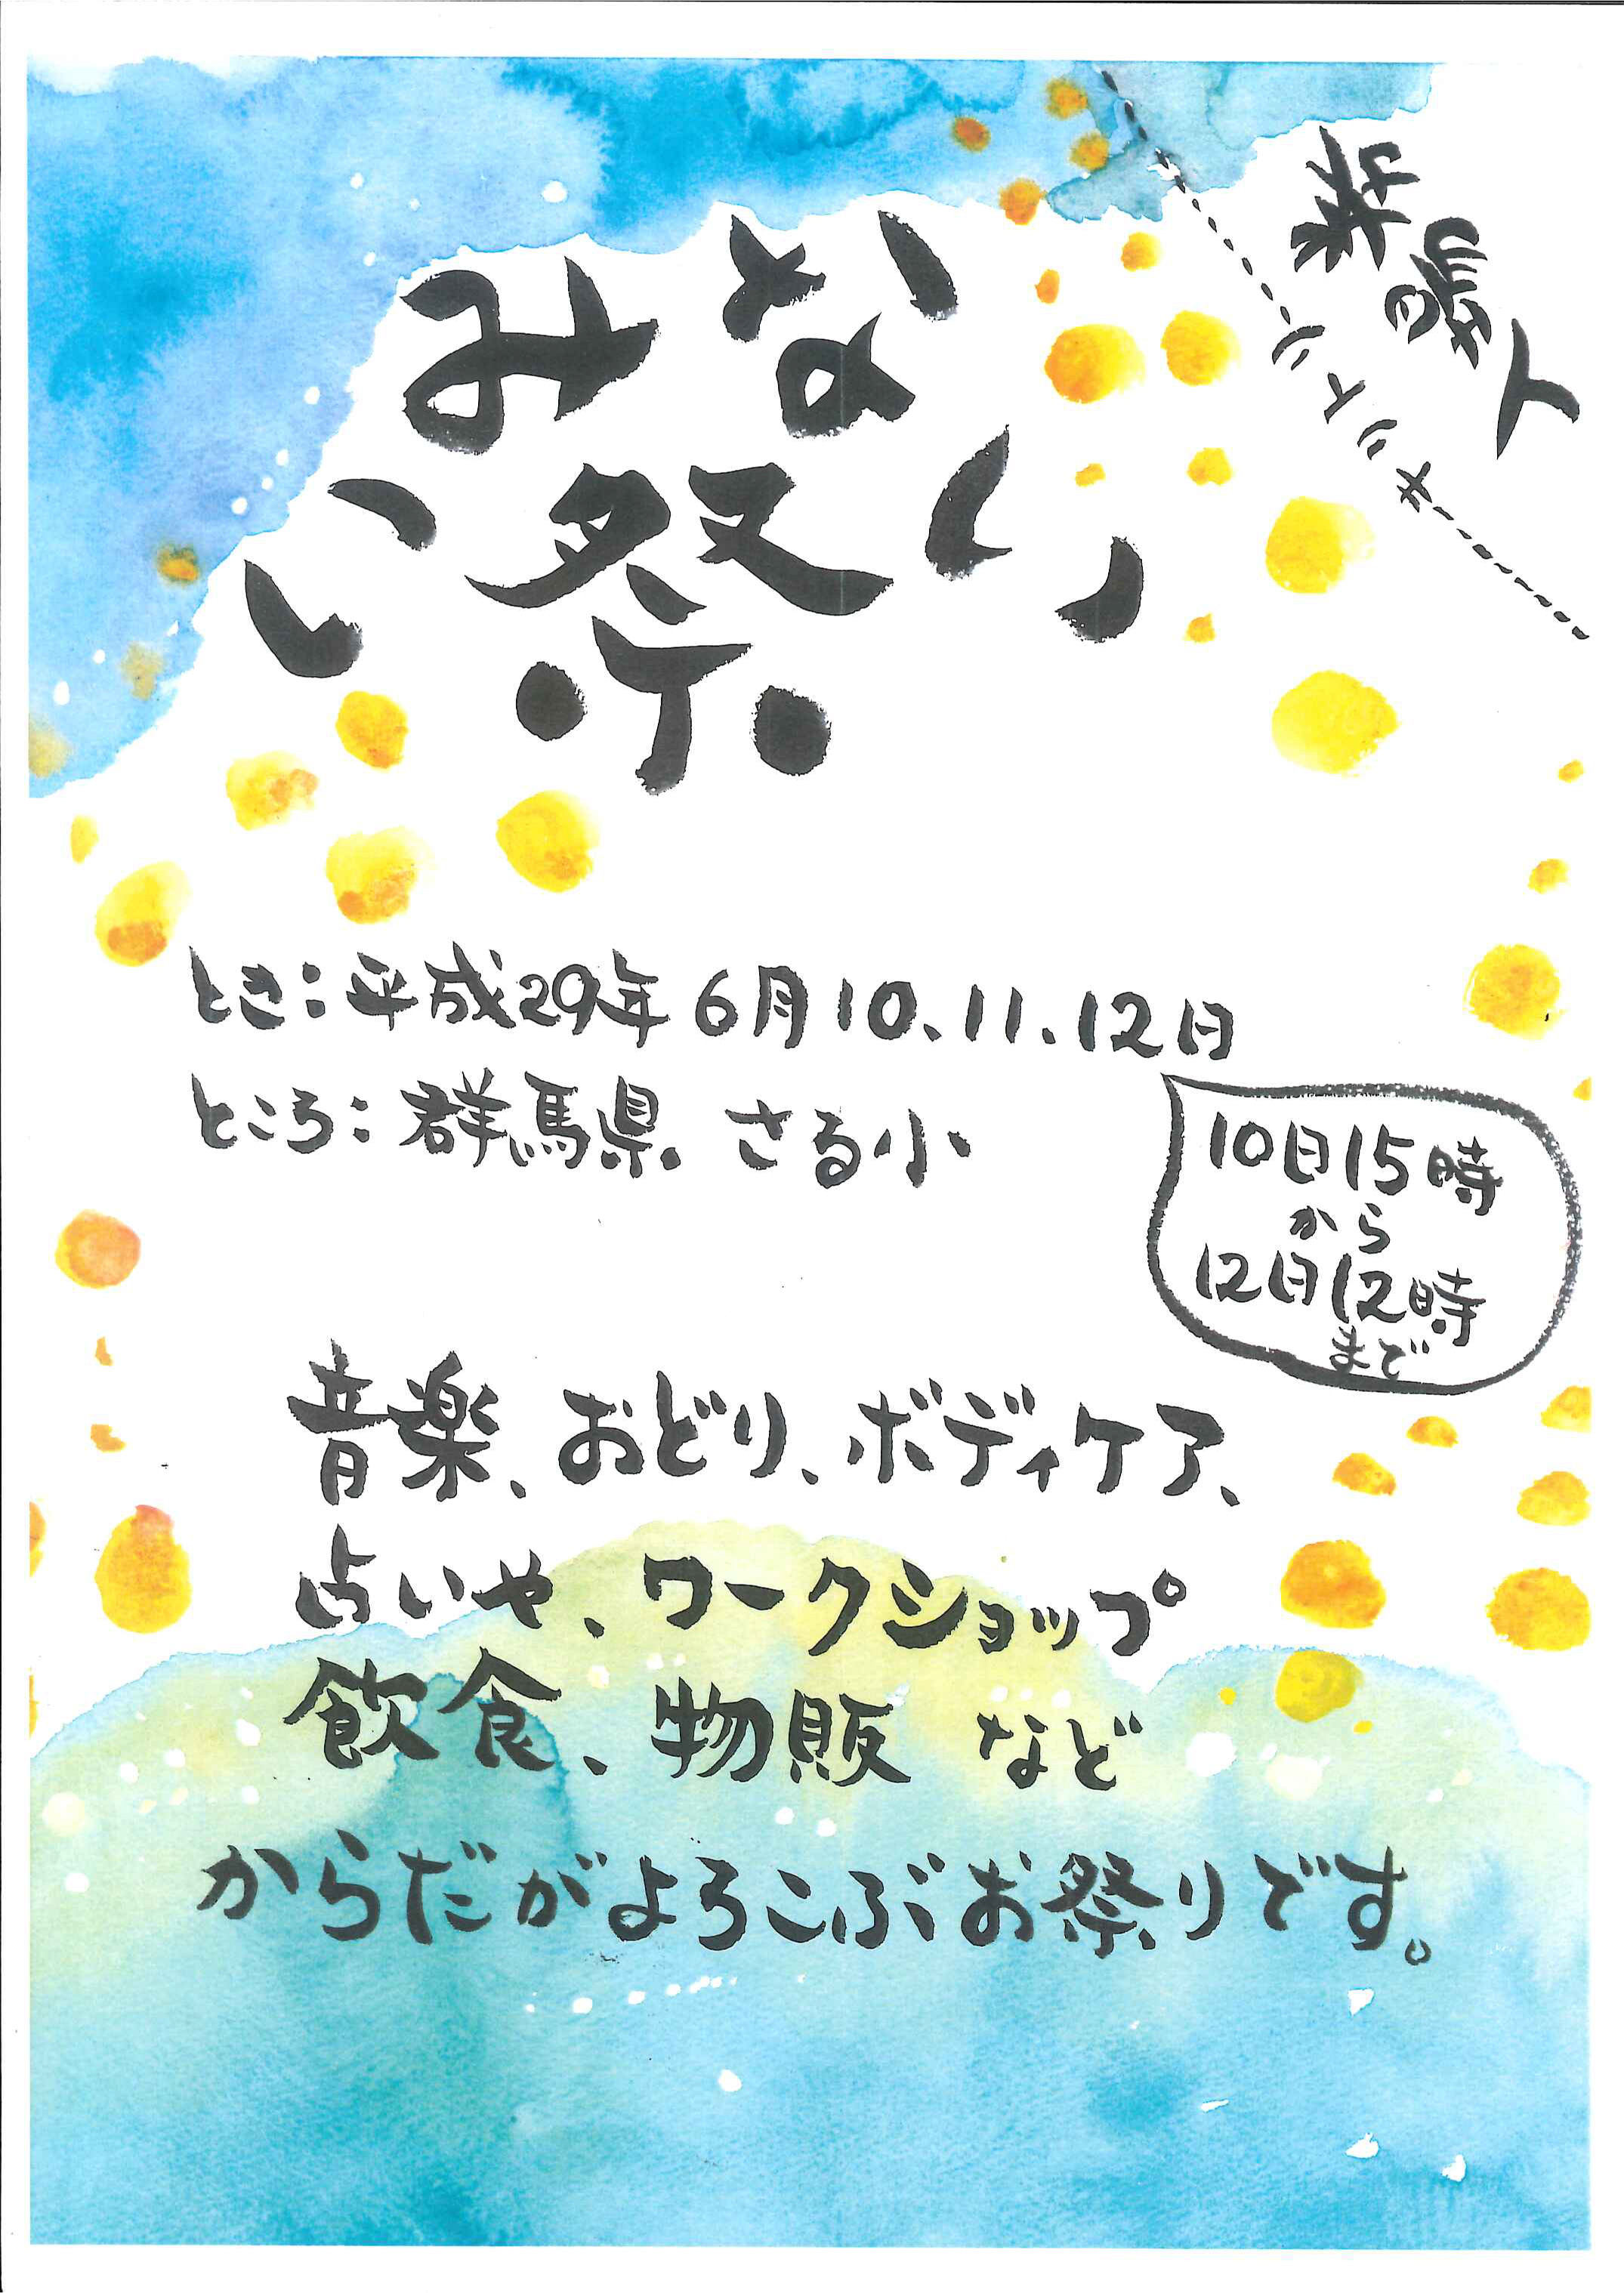 入場券
キリトリ
いみない
祭
とき：平成29年 6月10、11、12日
ところ：群馬県 さる小
10日15時
から
12日12時
まで
音楽、おどり、ボディケア、
占いや、ワークショップ
飲食、物販 など
からだがよろこぶお祭りです。